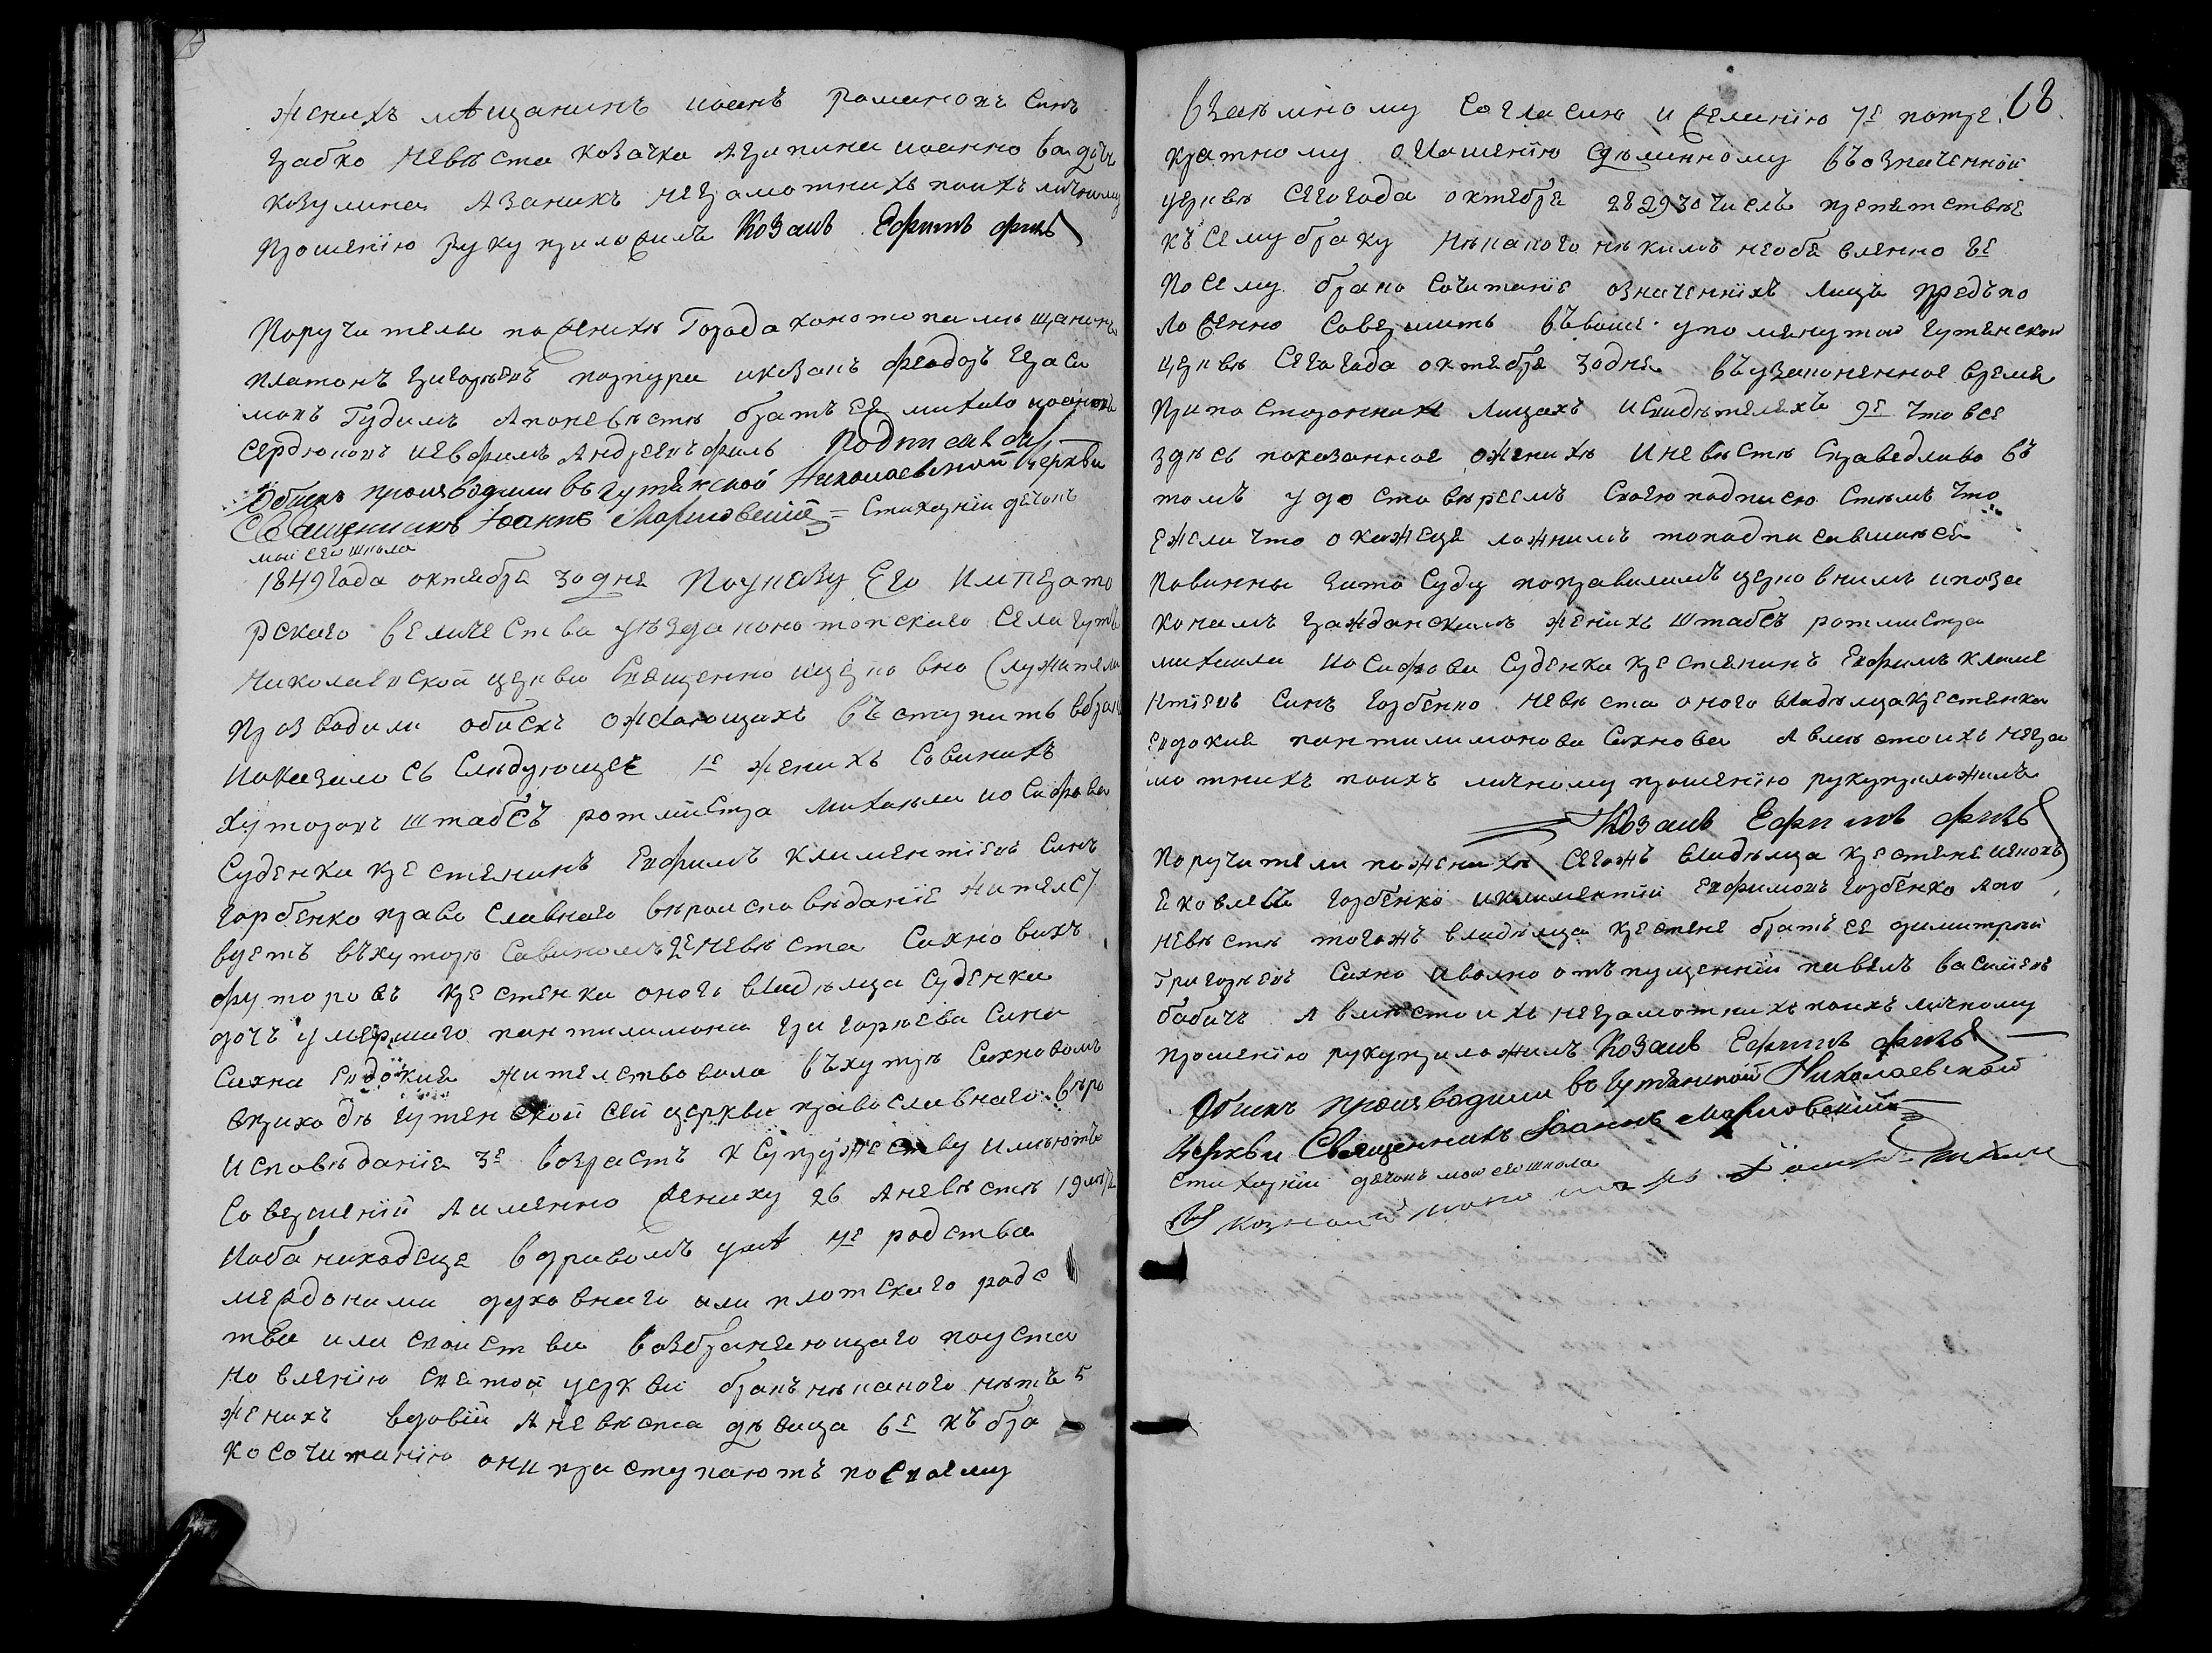 женихъ мѣщанинъ иоанъ романовъ синъ
грабко невѣста козачка агрипина иоаннова дочъ
козулина а за нихъ неграмотнихъ по ихъ личному
прошенію руку приложилъ Козакъ Ефимъ филь
Поручители по женихѣ Города конотопа мѣщанинъ
платонъ григорѣевъ иказакъ феодоръ гераси
мовъ Гудимъ а по невѣстѣ братъ ее михало иоановъ
сердюковъ иевфимъ Андреевъ филь
Обискъ производили въ гутянской Николаевской церкви
Священникъ Иоаннъ = Стихарнiй дячокъ
1849 года октября 30 дня По указу Его Императо
рского величества уѣзда конотопского села гутъ
Николаевской церкви Священно ицерковно служители
производили обискъ ожелающихъ въступить вбракъ
иоказалось слѣдующее 1е женихъ Савинихъ
хуторовъ штабсъ ротмистра михаила иосифова
Суденки крестянинъ Евфимъ климентіевъ синъ
горбенко православного вѣроисповѣданіе жителст
вуетъ въхуторѣ Савиномъ 2е невѣста Сахновихъ
футоровъ крестянка оного владѣлца Суденки
дочъ умершаго пантилимона григорѣева сина
Сахна Евдокия жителствовала въхуторѣ Сахновомъ
вприходѣ гутянской сей церкви православного вѣро
исповѣданіе 3е возрастъ к супружеству имѣютъ
совершеній а именно жениху 26 а невѣстѣ 19 лѣтъ
иоба находяце вздравомъ умѣ 4е родства
между ними духовнаго или плотскаго родс
тва или свойства возбраняющаго по уста
новленію святой церкви бракъ нѣкакого нѣтъ 5
женихъ вдовій а невѣста дѣвица 6е къ бра
косочитанію они приступаютъ по своему
68
взаимному согласию и желанію 7е потре
кратному огпашенію сдѣланному въозначенной
церквѣ сего года октября 28 29 30 числъ препятствѣе
къ сему браку нѣкакого нѣкимъ необявленно 8е
По сему брако сочитаніе означеннихъ лицъ предъпо
ложенно совершить въвише упомянутой гутянской
церквѣ сего года октября 30 дня въузаконенное время
при посторонних лицахъ исвидѣтеляхъ 9е что все
здѣсь показанное о женихѣ иневѣстѣ справедливо въ
томъ удостовѣряемъ своею подписю стѣмъ что
ежели что окажеце ложнимъ топодписавшиеся
повинны за то суду по правиламъ церковнимъ ипоза
конамъ гражданскимъ женихъ штабсъ ротмистра
михаила иосифова Суденки крестянинъ Евфимъ климе
нтіевъ синъ горбенко невѣста оного владѣлца крестянка
евдокия пантилимонова Сахнова а вмѣсто ихъ негра
мотнихъ по ихъ личному прошенію руку приложилъ
Козакъ Ефимъ филь
Поручители по женихѣ сегожъ владѣлца крестяне
яковлевъ горбенко иклиментій Евфимовъ горбенко а по
невѣстѣ тогожъ владѣлца крестяне братъ ее димитрий
Григорѣевъ Сахно иволно отъпущенній павелъ василіевъ
бабичъ а вмѣсто ихъ неграмотнихъ по ихъ личному
прошенію руку приложилъ Козакъ Ефимъ филь
Обискъ производили въ гутянской Николаевской
Церкви Священникъ Иоаннъ
Стихарнiй дячокъ